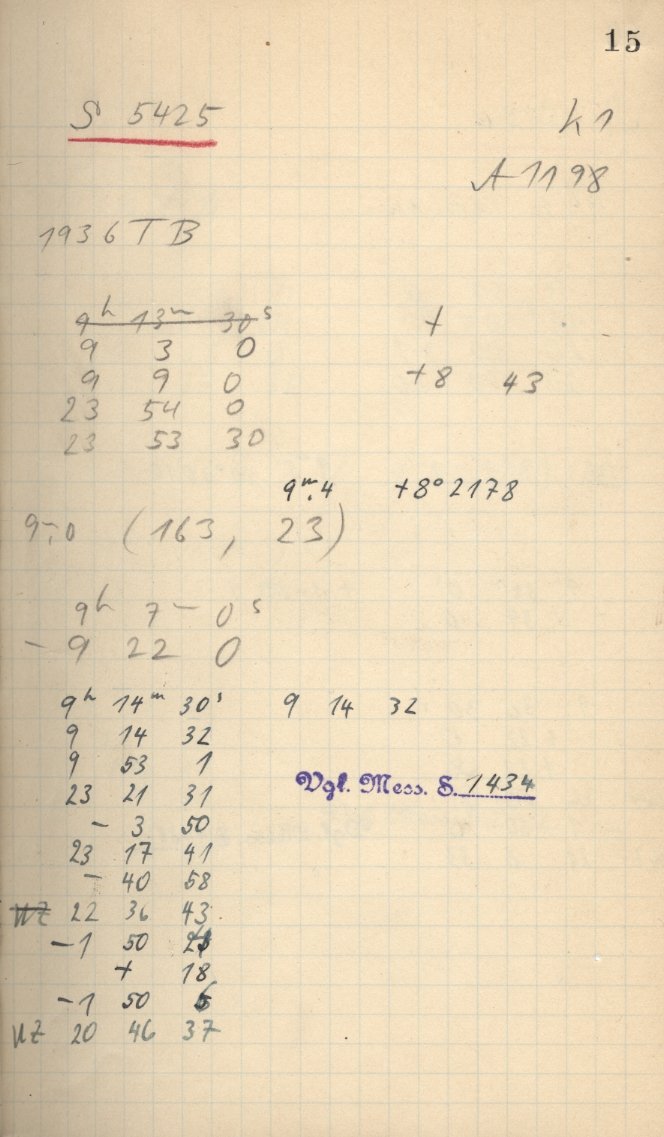 15
S 5425 h 1
A 1198
1936 TB
9h 13m 30s +
9 3 0
9 9 0 +8 43
23 54 0
23 53 30
9m.4 +8° 2178
9m.0 (163, 23)
9h 7m 0s
- 9 22 0
9h 14m 30s 9 14 32
9 14 32
9 53 1
23 21 31 Vgl. Mess. S. 1434
- 3 50
23 17 41
- 40 58
UZ 22 36 43
-1 50 24
+ 18
-1 50 6
UZ 20 46 37